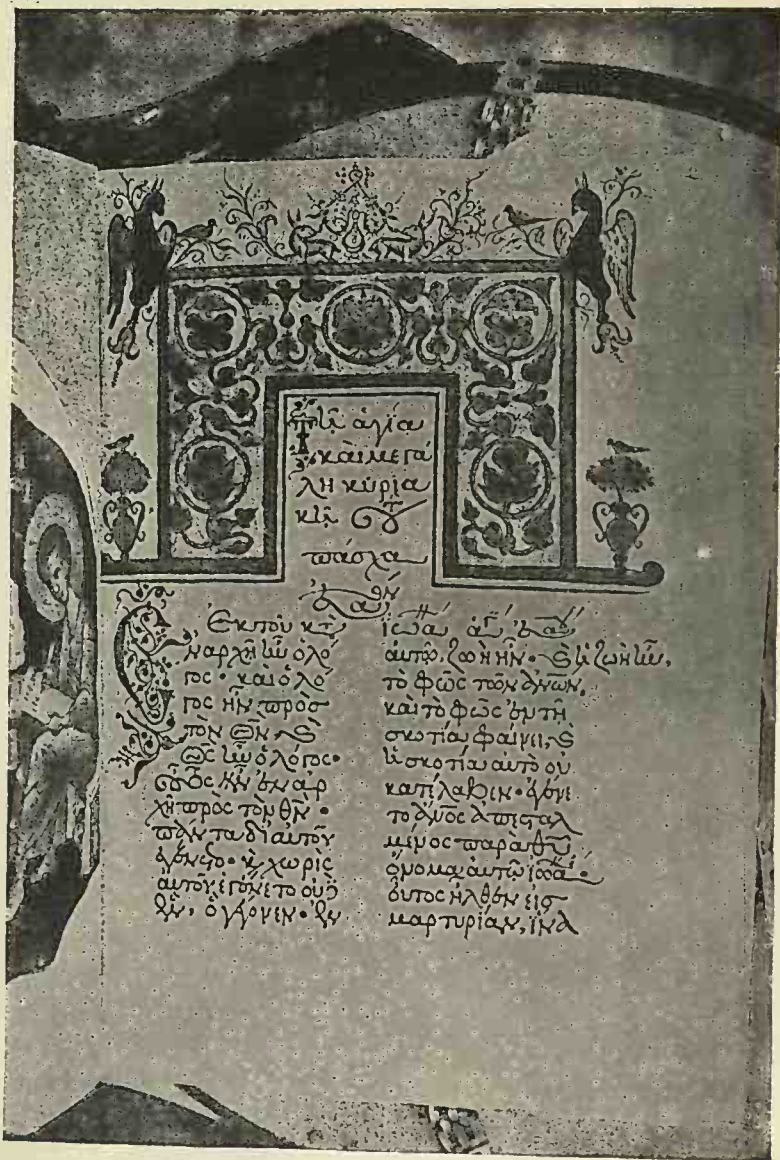 Τῆ ἁγία
καὶ μεγά
λη κυρια
κῆ τ
πάσχα
Ἐκ τοῦ κατ
Ἐναρχῆ ἦν ὁ λό
γος· καὶ ὁ λό
γος ἦν πρὸς
τὸν Θν· καὶ
Θς ἦν ὁ λόγος·
οὗτος ἦν ἐν ἀρ
χῆ πρὸς τὸν θν·
πάντα δι αυτοῦ
ἐγένετο· καὶ χωρὶς
αὐτοῦ ἐγένετο οὐδ
ἕν· ὃ γέγονεν· ἐν
αὐτῷ, ζωὴ ἦν· καὶ ἡ ζωὴ ἦν,
τὸ φῶς τῶν ἀνων,
καὶ τὸ φῶς ἐν τῆ
σκοτία φαίνει, καὶ
ἡ σκοτία αὐτὸ οὐ
κατέλαβεν· ἐγένε
το ἄνος ἀπεσταλ
μένος παρὰ θυ
ὄνομα αὐτῶ ἰωά·
οὗτος ἦλθεν εἰς
μαρτυρίαν, ἵνα